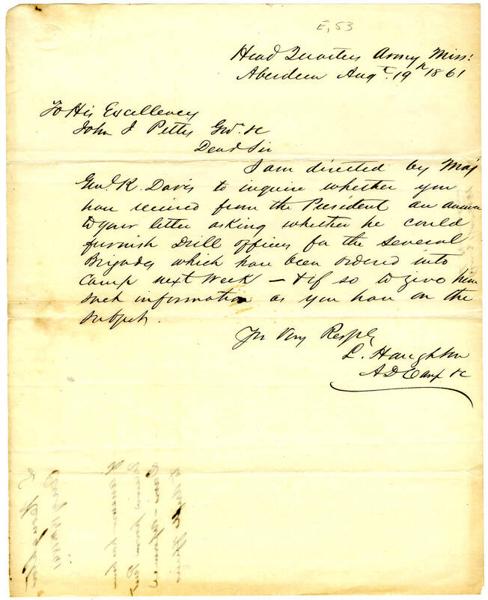 E, 53
Head Quarters Army Miss:
Aberdeen Augt 19th 1861
To His Excellency
John J Pettus Gov. &c
Dear Sir
I am directed by Maj
Genl R. Davis to inquire whether you
have received from the President an answer
to your letter asking whether he could
furnish Drill officers for the Several
Brigades which have been ordered into
Camp next week – & if so to give him
such information as you have on the
subject.
Yr Very Respfly
L. Haughton
A D Camp &c